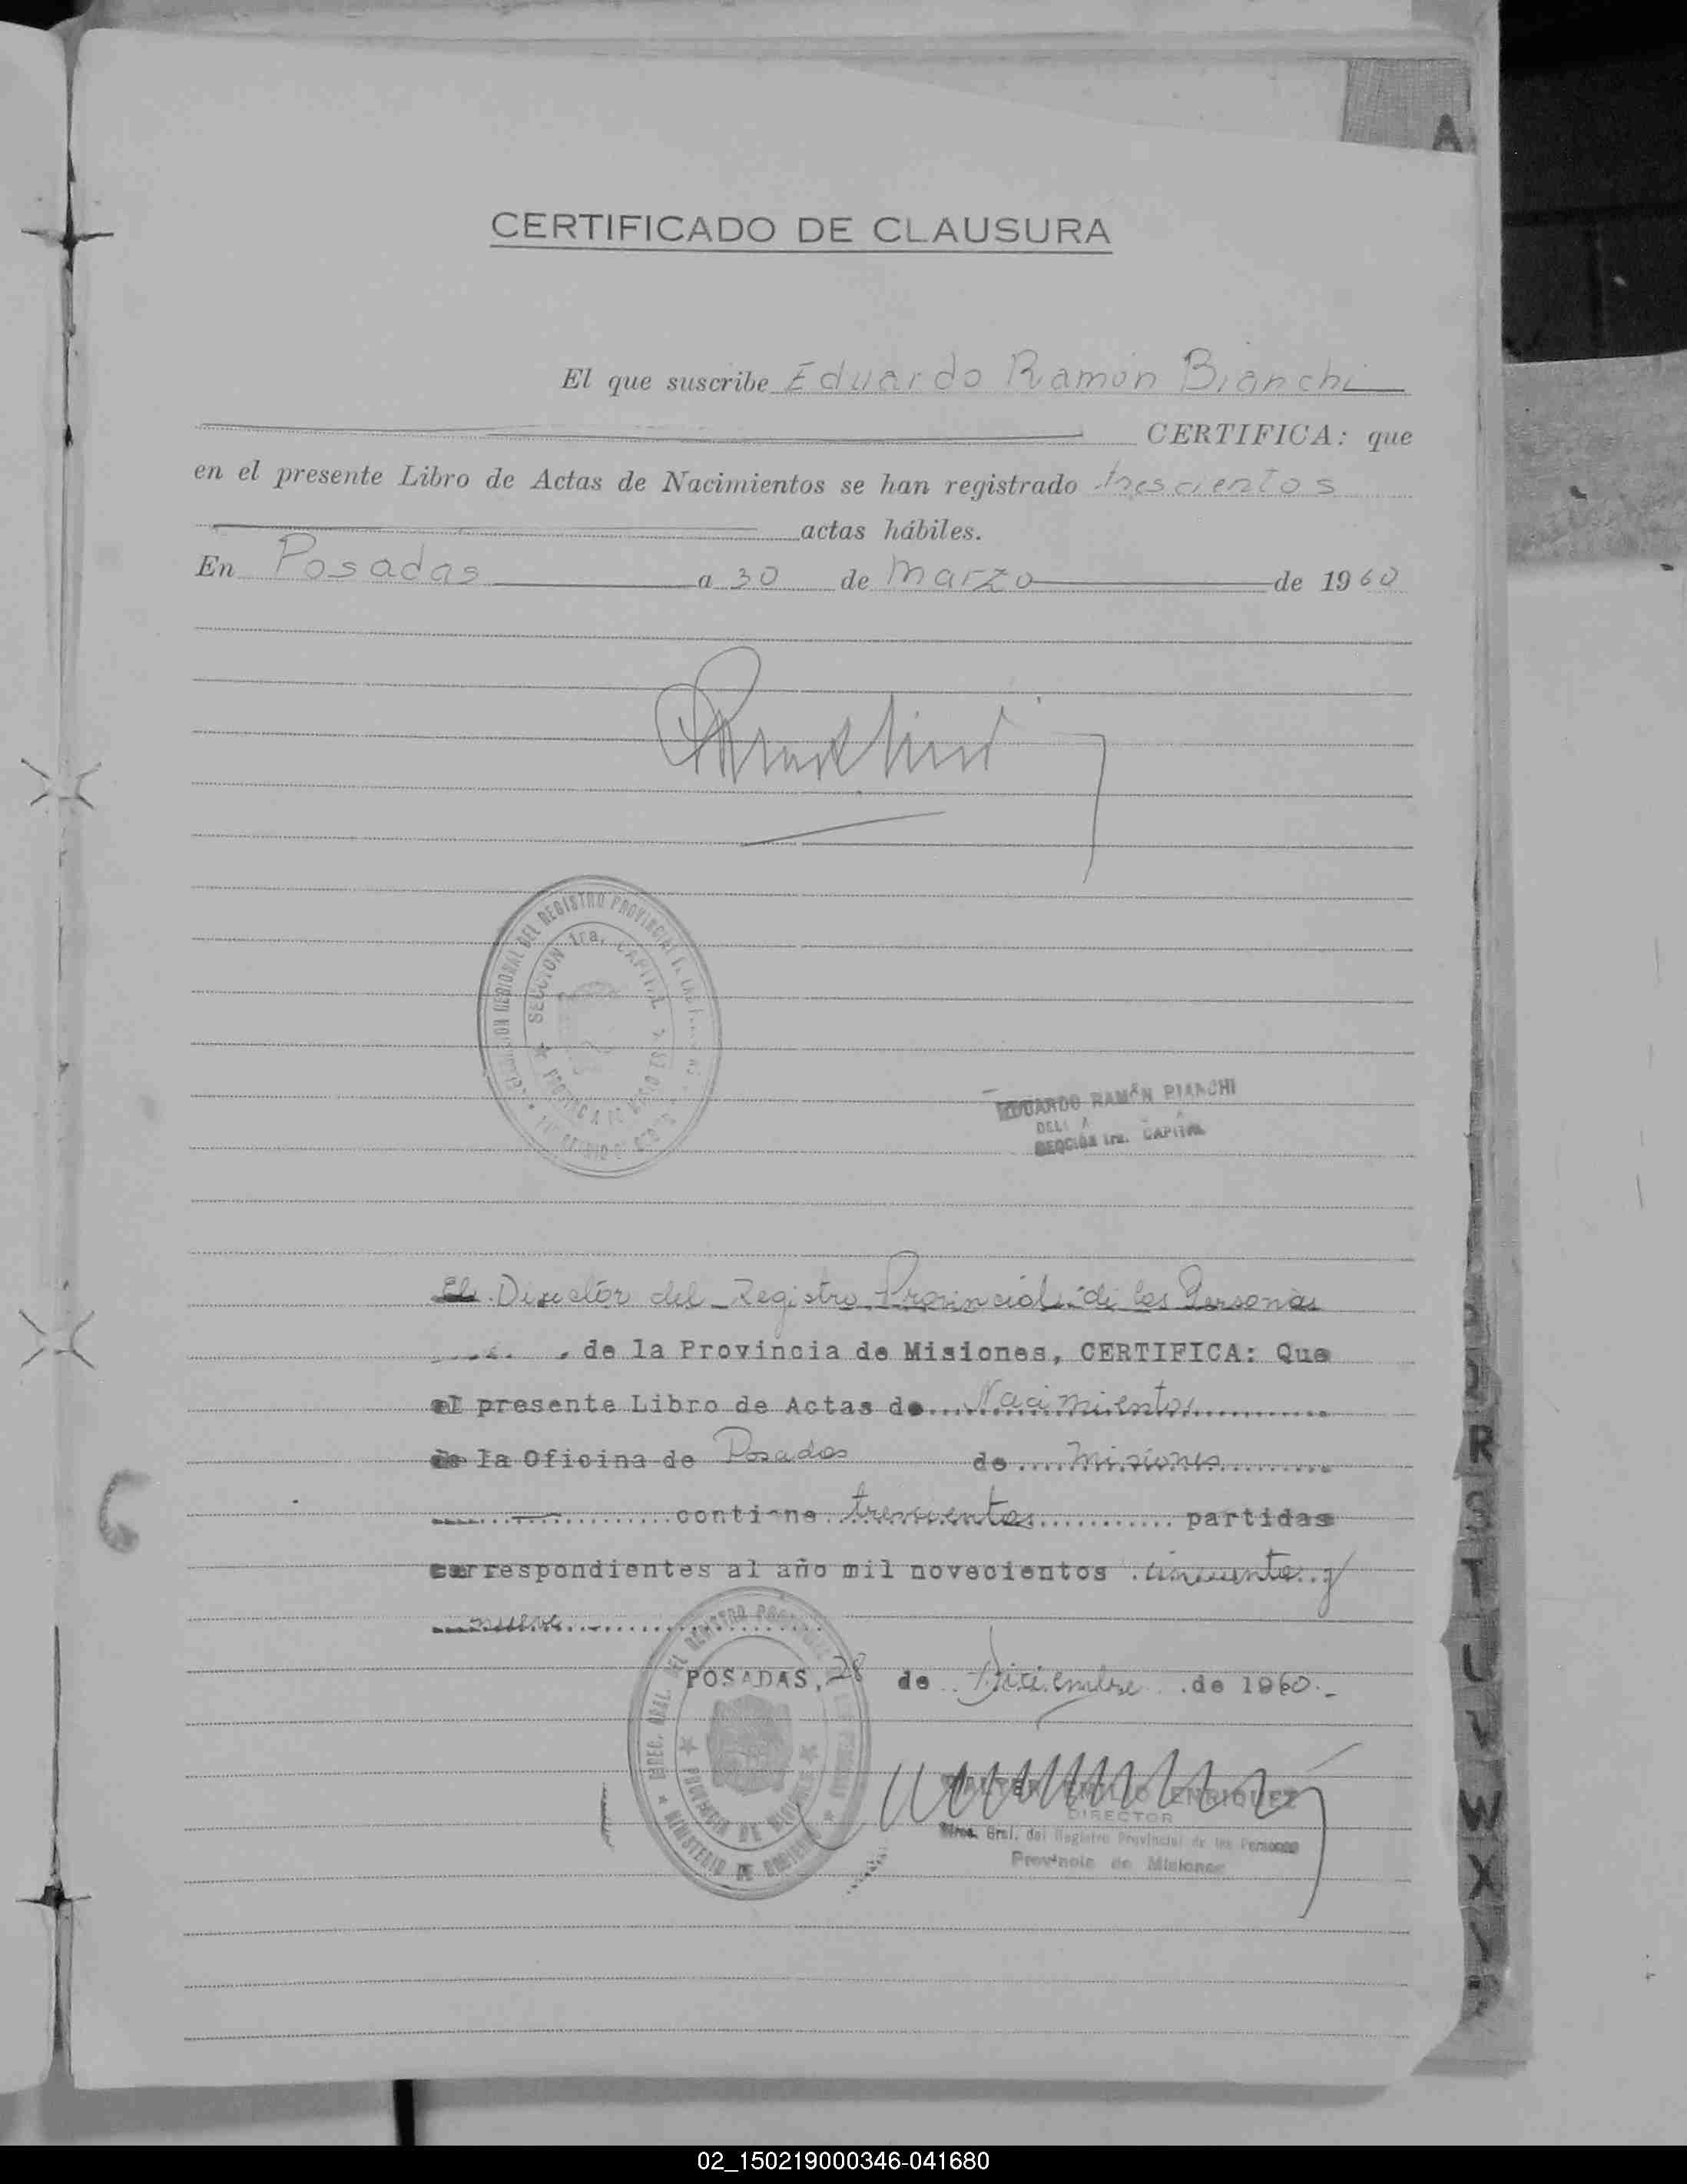 A
CERTIFICADO DE CLAUSURA
El que suscribe Eduardo Ramón Bianchi
CERTIFICA: que
en el presente Libro de Actas de Nacimientos se han registrado trescientos
actas hábiles.
En Posadas a 30 de Marzo de 1960
DEL REGISTRO PROVINCIAL
SECCION 1ra. CAPITAL
EDUARDO RAMÓN BIANCHI
SECCIÓN 1ra. CAPITAL
El Director del Registro Provincial de las Personas
de la Provincia de Misiones, CERTIFICA: Que
el presente Libro de Actas de Nacimientos
de la Oficina de Posadas de Misiones
contiene trescientos partidas
correspondientes al año mil novecientos cincuenta y
nueve
POSADAS, 28 de Diciembre de 1960.-
DIREC. GRAL. DEL REGISTRO
PROVINCIA DE MISIONES
MINISTERIO DE GOBIERNO
WALTER EMILIO ENRIQUEZ
DIRECTOR
Direc. Gral. del Registro Provincial de las Personas
Provincia de Misiones
R
S
T
U
V
W
X
Y
02_150219000346-041680